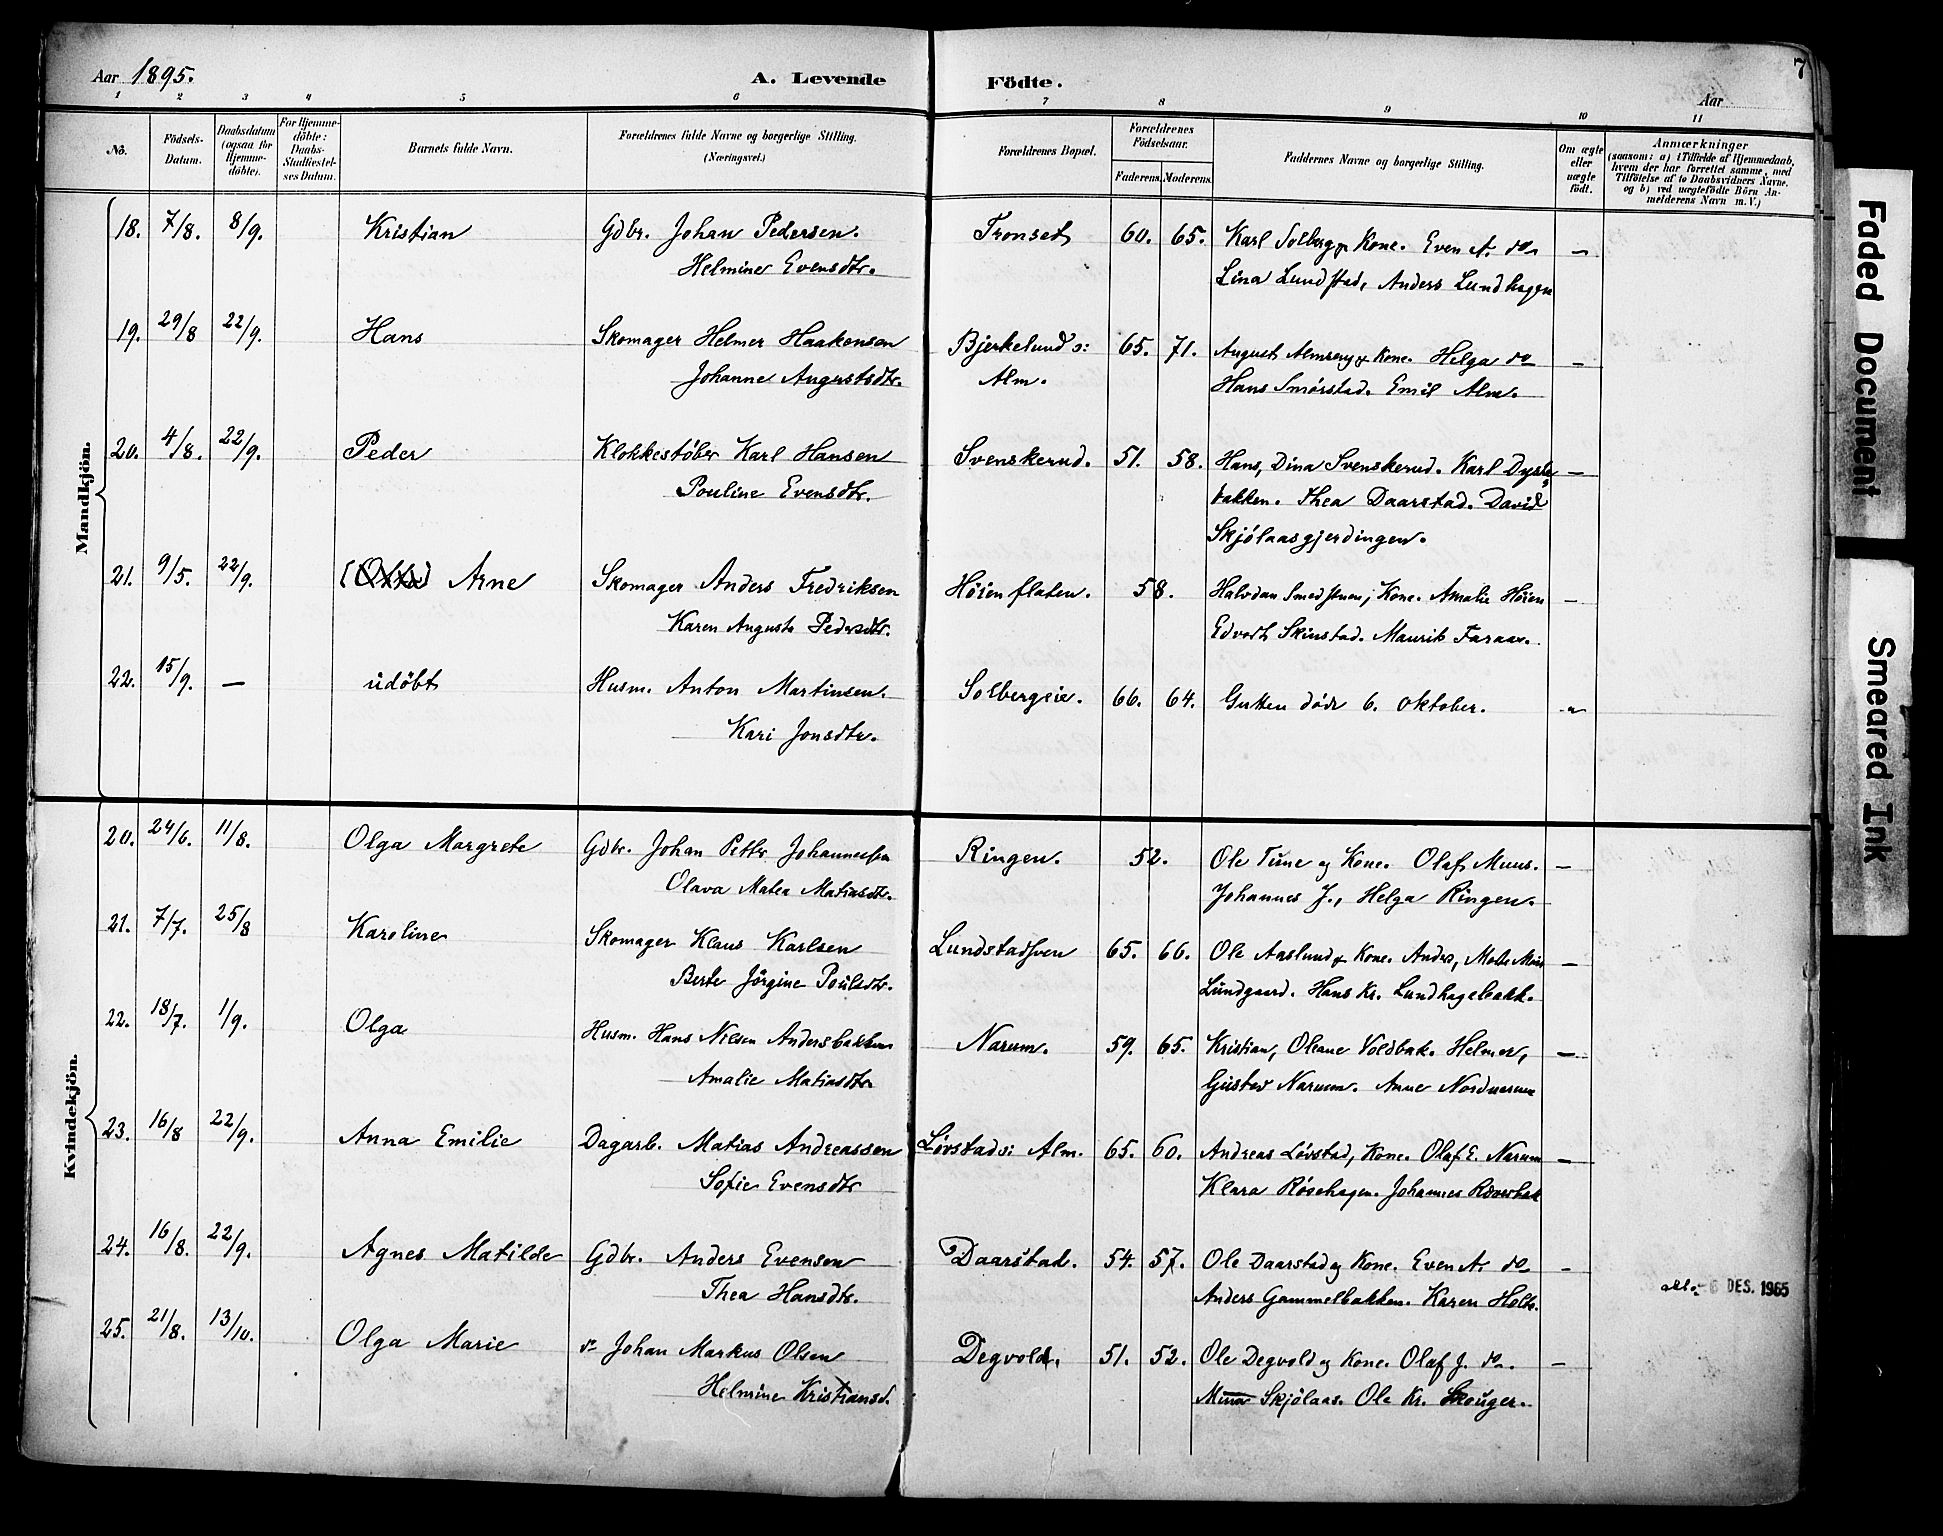 Aar 1895. A. Levende Födte. Aar 7
1 2 3 4 5 6 7 8 9 10 11
No. Födsels-Datum. Daabsdatum (ogsaa for Hjemmedöbte). For Hjemmedöbte: Daabs-Stadfæstelses Datum. Barnets fulde Navn. Forældrenes fulde Navne og borgerlige Stilling. (Næringsvei.) Forældrenes Bopæl. Forældrenes Födselsaar. Faderens. Moderens. Faddernes Navne og borgerlige Stilling. Om ægte eller uægte födt. Anmærkninger (saasom: a) i Tilfælde af Hjemmedaab, hvem der har forrettet samme, med Tilföielse af to Daabsvidners Navne, og b) ved uægtefödte Börn Anmelderens Navn m. V.)
Mandkjön.
18. 7/8. 8/9. Kristian Gdbr. Johan Pedersen. Tronset 60. 65. Karl Solberg og Kone. Even A. do —
Helmine Evensdtr. Lina Lundstad, Anders Lundhagen
19. 29/8 22/9. Hans Skomager Helmer Haakensen Bjerkelund s: 65. 71. August Almseng og Kone. Helga do —
Johanne Augustsdtr. Alm. Hans Smörstad. Emil Alm.
20. 4/8. 22/9. Peder Klokkestøber Karl Hansen Svenskerud. 51. 58. Hans, Dina Svenskerud. Karl Dyste —
Pouline Evensdtr. bakken. Thea Daarstad. David
Skjölaasgjerdingen.
21. 9/5. 22/9. Arne Skomager Anders Fredriksen Høienflaten. 58. Halvdan Smedstuen, Kone. Amalie Høien —
Karen Augusta Pedersdtr. Edvart Skinstad. Maurits
22. 15/9. — udöbt Husm. Anton Martinsen. Solbergeie. 66. 64. Gutten döde 6. oktober. "
Kari Jonsdtr.
Kvindekjön.
20. 24/6. 11/8. Olga Margrete Gdbr. Johan Petter Johannessen Ringen. 52. Ole Tune og Kone. Olaf Muus. —
Olava Matea Matiasdtr. Johannes J., Helga Ringen.
21. 7/7. 25/8 Karoline Skomager Klaus Karlsen Lundstadsven 65. 66. Ole Aaslund og Kone. Anders,
Berte Jörgine Poulsdtr. Lundgaard. Hans Kr. Lundhagebakk.
22. 18/7. 1/9. Olga Husm. Hans Nilsen Andersbakken Narum. 59. 65. Kristian, Oleane Voldbak. Helmer, —
Amalie Matiasdtr Gustav Narum. Anne Nordnarum
23. 16/8 22/9. Anna Emilie Dagarb. Matias Andreassen Løvstad s: Alm. 65. 60. Andreas Løvstad, Kone. Olaf E. Narum —
Sofie Evensdtr Klara Røsehagen. Johannes
24. 16/8. 22/9. Agnes Matilde Gdbr. Anders Evensen Daarstad. 54. 57. Ole Daarstad og Kone. Even A. do -
Thea Hansdtr. Anders Gammelbakken. Karen Holte.
6 DES. 1965
25. 21/8. 13/10. Olga Marie do Johan Markus Olsen Degvold. 51. 52. Ole Degvold og Kone. Olaf J. do. —
Helmine Kristiansd. Mina Skjölaas. Ole Kr. Skouger.
Faded Document
Smeared Ink